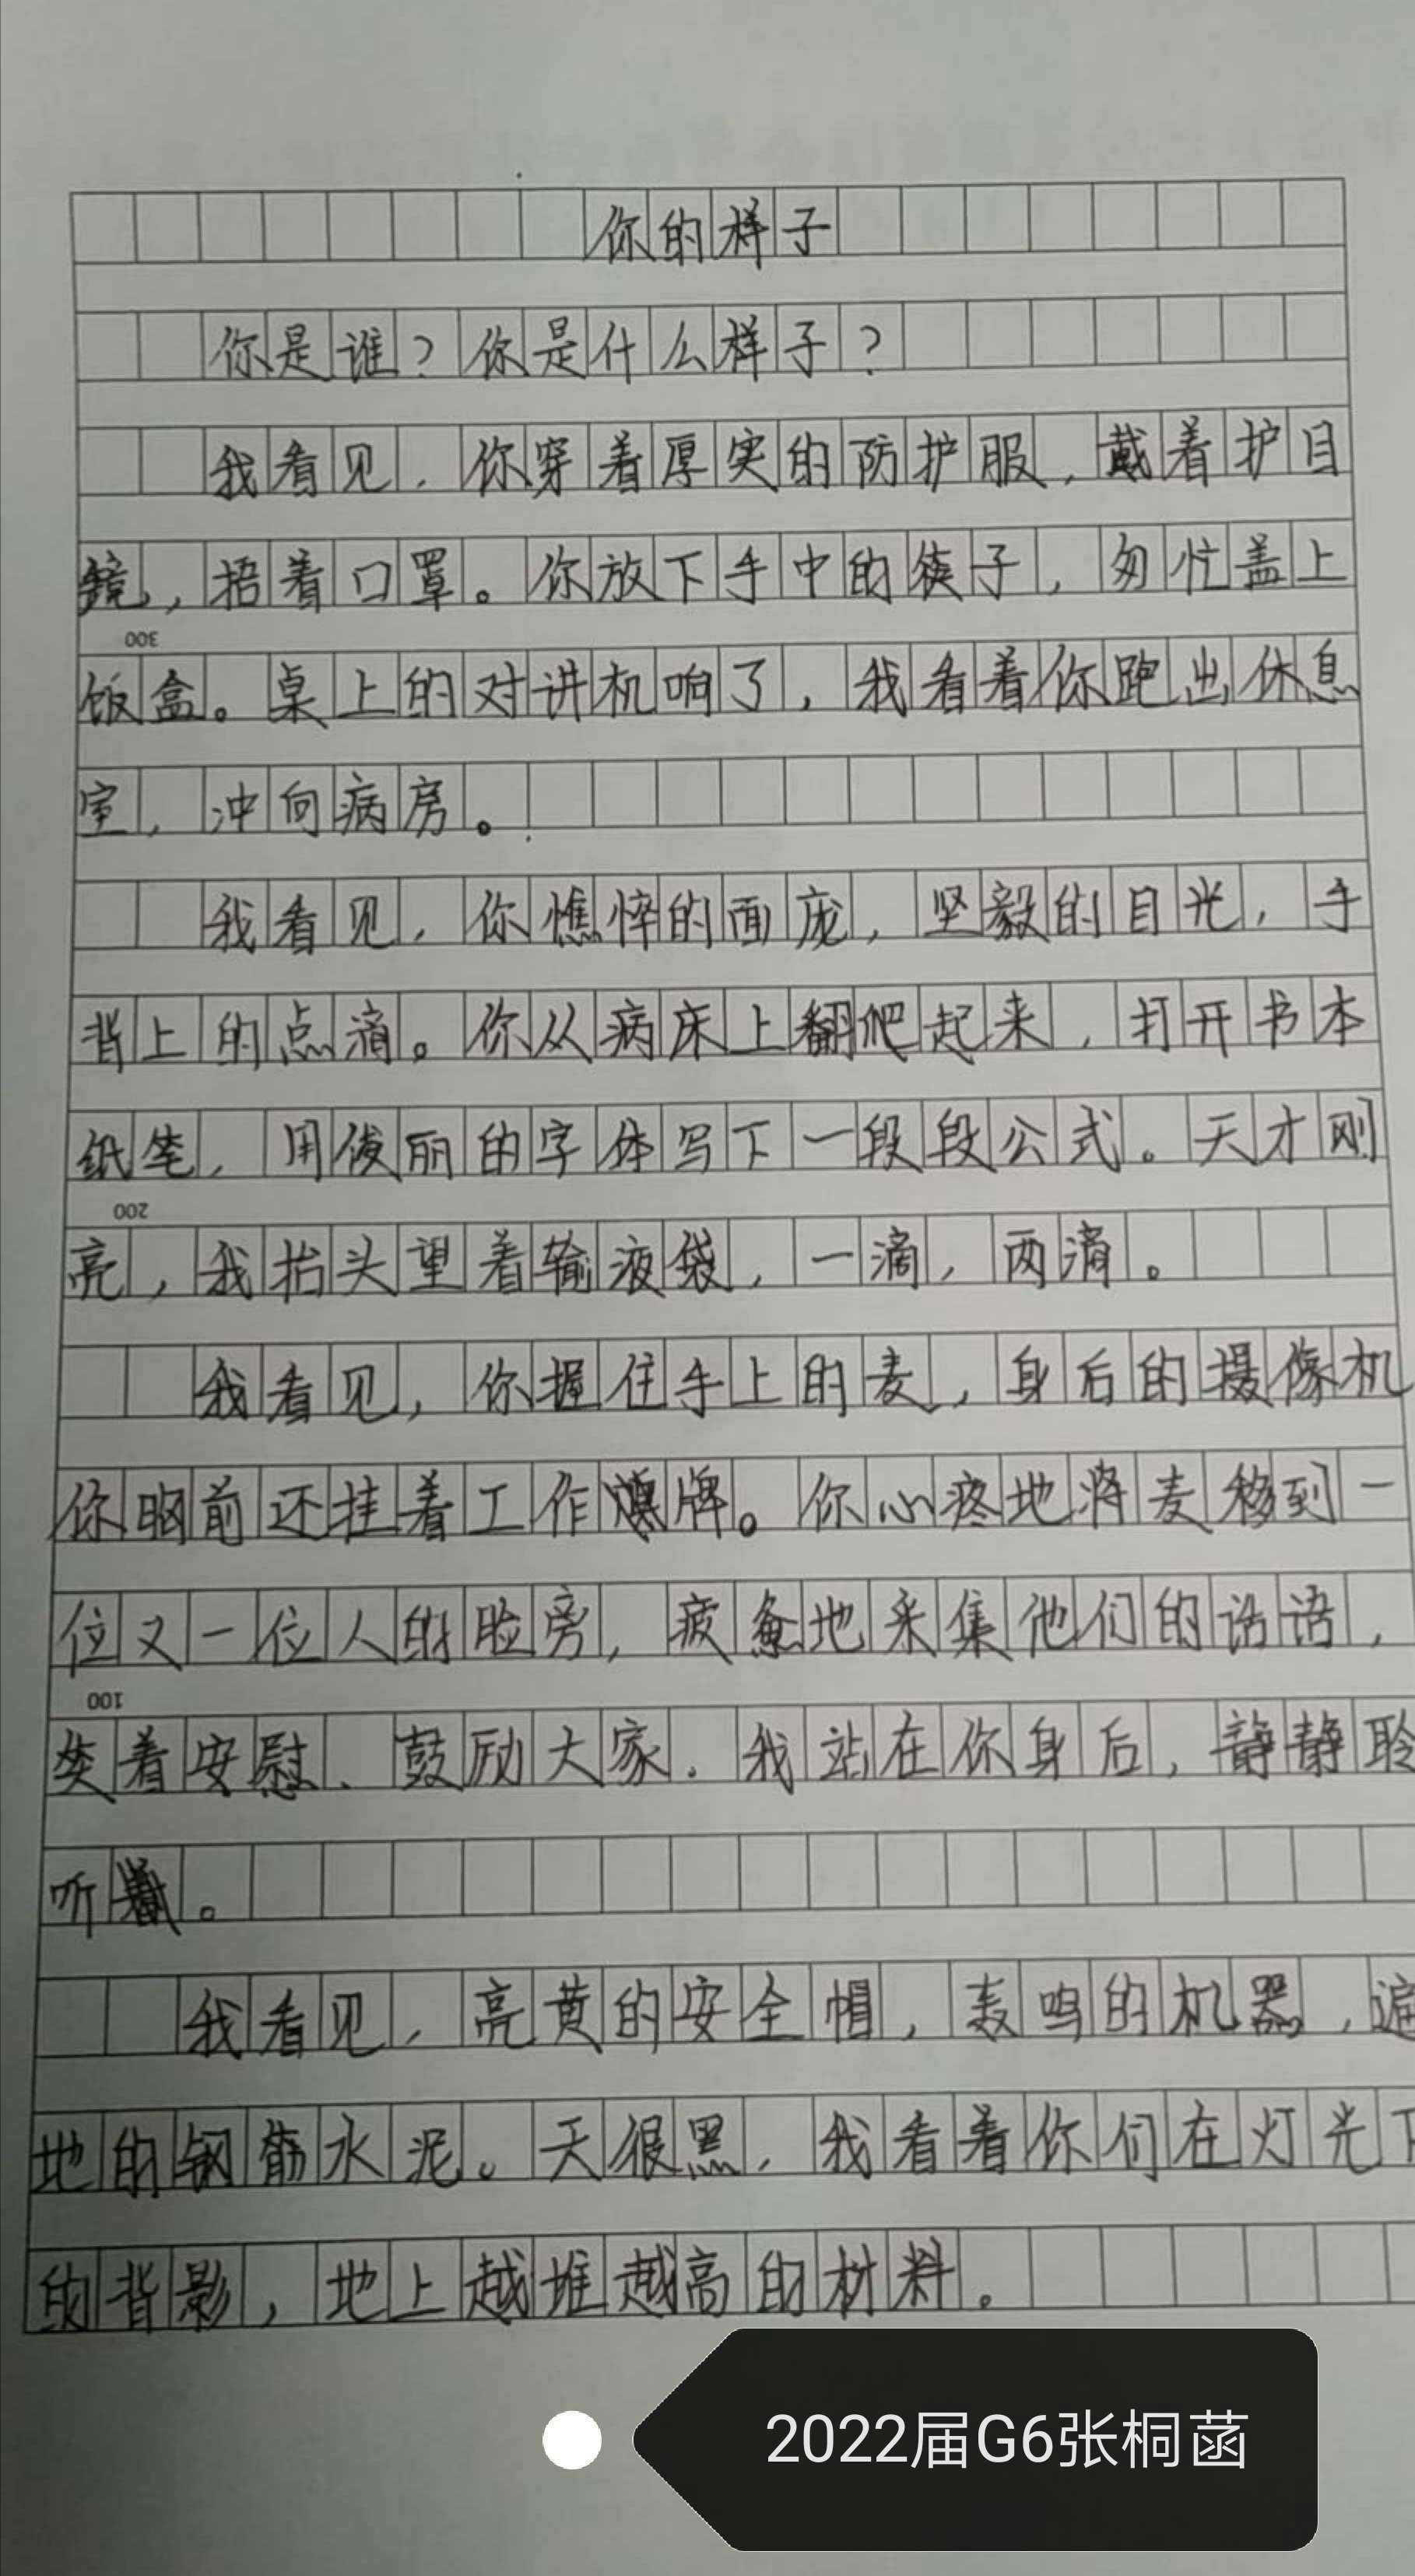 你的样子
你是谁?你是什么样子?
我看见,你穿着厚实的防护服,戴着护目
镜,捂着口罩。你放下手中的筷子,匆忙盖上
300
饭盒。桌上的对讲机响了,我看着你跑出休息
室,冲向病房。
我看见,你憔悴的面庞,坚毅的目光,手
背上的点滴。你从病床上翻爬起来,打开书本
纸笔,用俊丽的字体写下一段段公式。天才刚
200
亮,我抬头望着输液袋,一滴,两滴。
我看见,你握住手上的麦,身后的摄像机
你胸前还挂着工作牌。你心疼地将麦移到一
位又一位人的脸旁,疲惫地采集他们的话语,
100
笑着安慰、鼓励大家。我站在你身后,静静聆
听。
我看见,亮黄的安全帽,轰鸣的机器,遍
地的钢筋水泥。天很黑,我看着你们在灯光下
的背影,地上越堆越高的材料。
2022届G6张桐菡